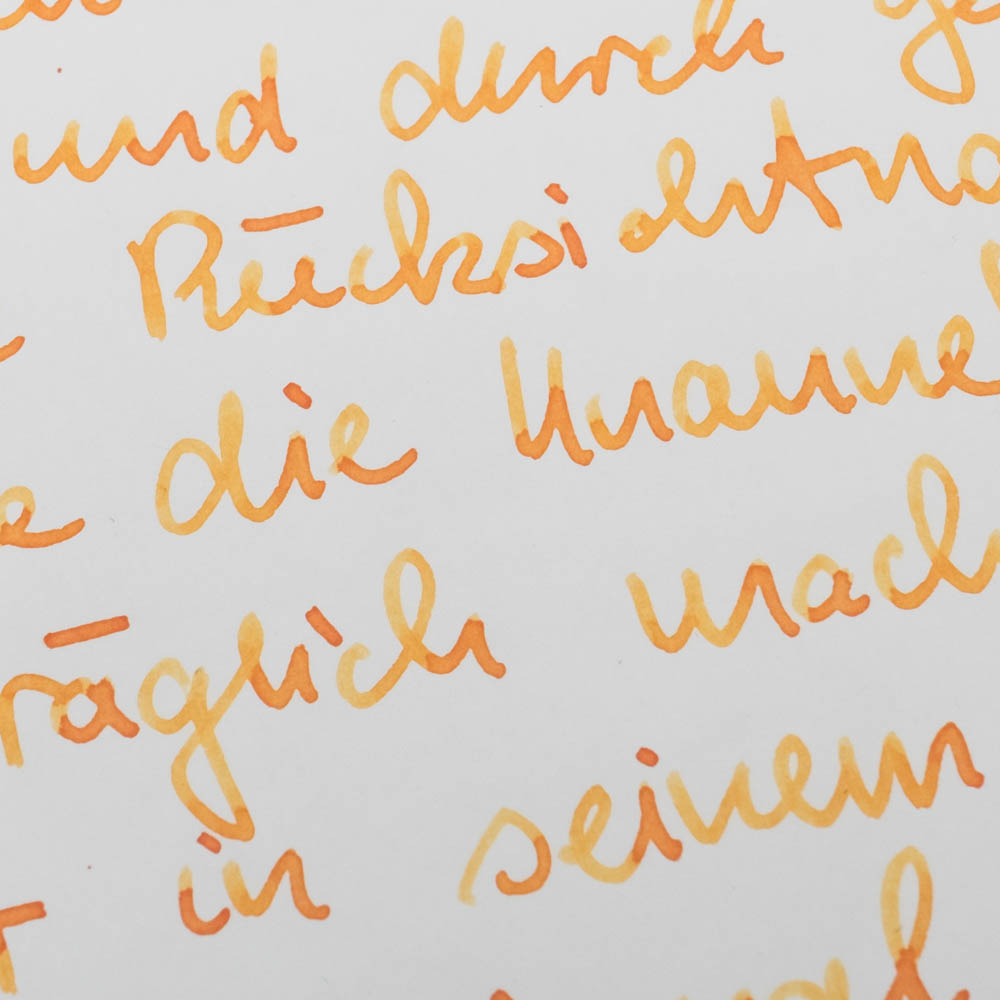 und durch ge
Rücksichtna
e die Unanne
räglich mach
in seinem